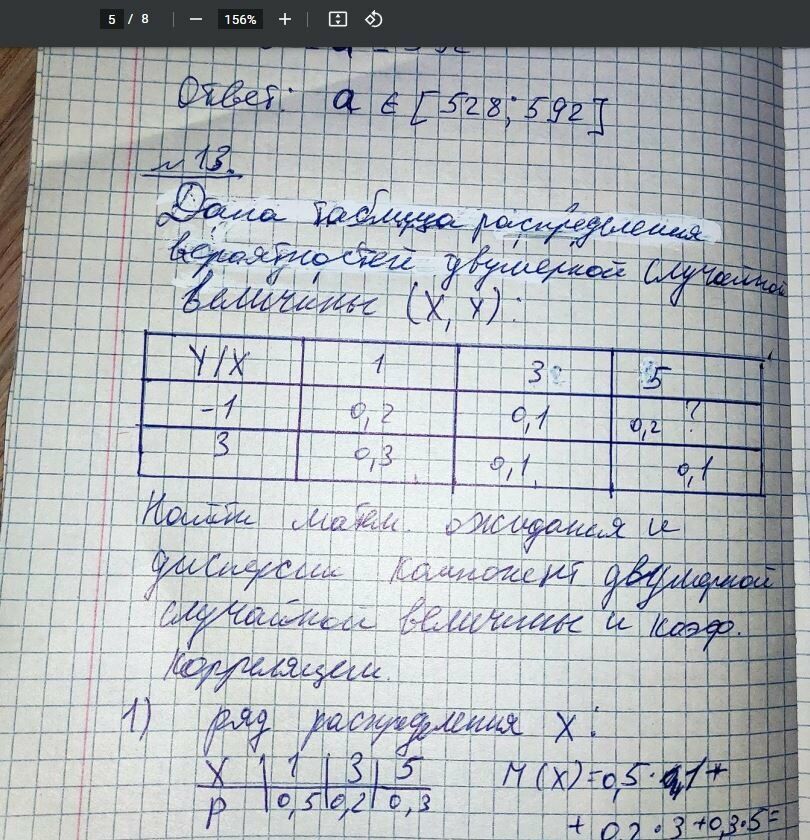 5 / 8 156%
Ответ: a ∈ [528; 592]
№ 13.
Дана таблица распределения
вероятностей двумерной случайной
величины (X, Y):
Y/X 1 3 5
-1 0,2 0,1 0,2 ?
3 0,3 0,1 0,1
Найти матем. ожидания и
дисперсии компонент двумерной
случайной величины и коэф.
корреляции.
1) ряд распределения X:
X 1 3 5 M(X)=0,5·1+
P 0,5 0,2 0,3 + 0,2·3+0,3·5=